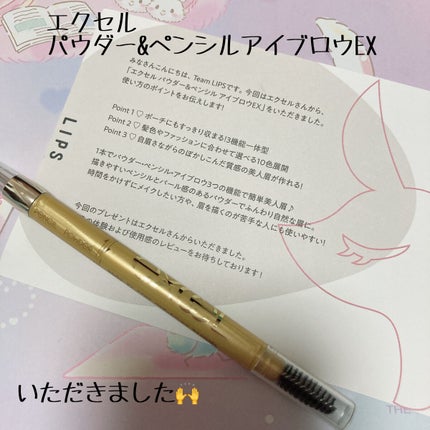 エクセル
パウダー&ペンシルアイブロウEX
みなさんこんにちは、Team LIPSです。今回はエクセルさんから、
「エクセル パウダー&ペンシル アイブロウEX」をいただきました。
使い方のポイントをお伝えします!
Point 1♡ ポーチにもすっきり収まる!3機能一体型
Point 2♡ 髪色やファッションに合わせて選べる10色展開
Point 3♡ 自眉さながらのぼかしこんだ質感の美人眉が作れる!
1本でパウダー・ペンシル・アイブロウ3つの機能で簡単美人眉♪
描きやすいペンシルとパール感のあるパウダーでふんわり自然な眉に。
時間をかけずにメイクしたい方や、眉を描くのが苦手な人にも使いやすい!
今回のプレゼントはエクセルさんからいただきました。
の体験および使用感のレビューをお待ちしております!
LIPS
THE
いただきました🙌